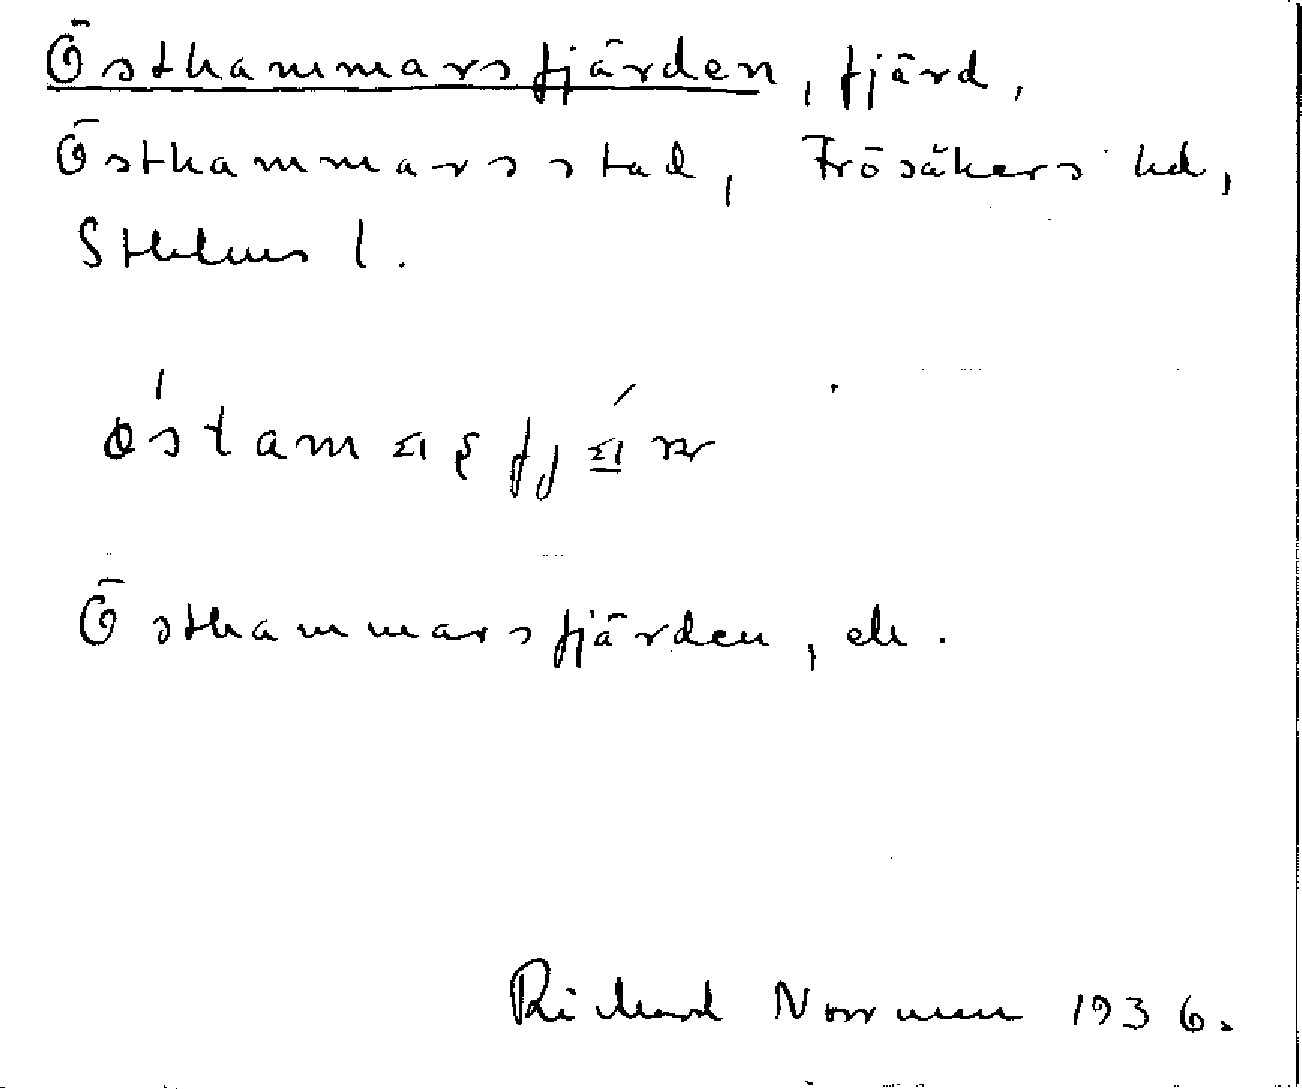 Östhammarsfjärden, fjärd,
Östhammars stad, Frösåkers hd,
Sthlms l.
Östhammarsfjärden, ek.
Richard Norrman 1936.